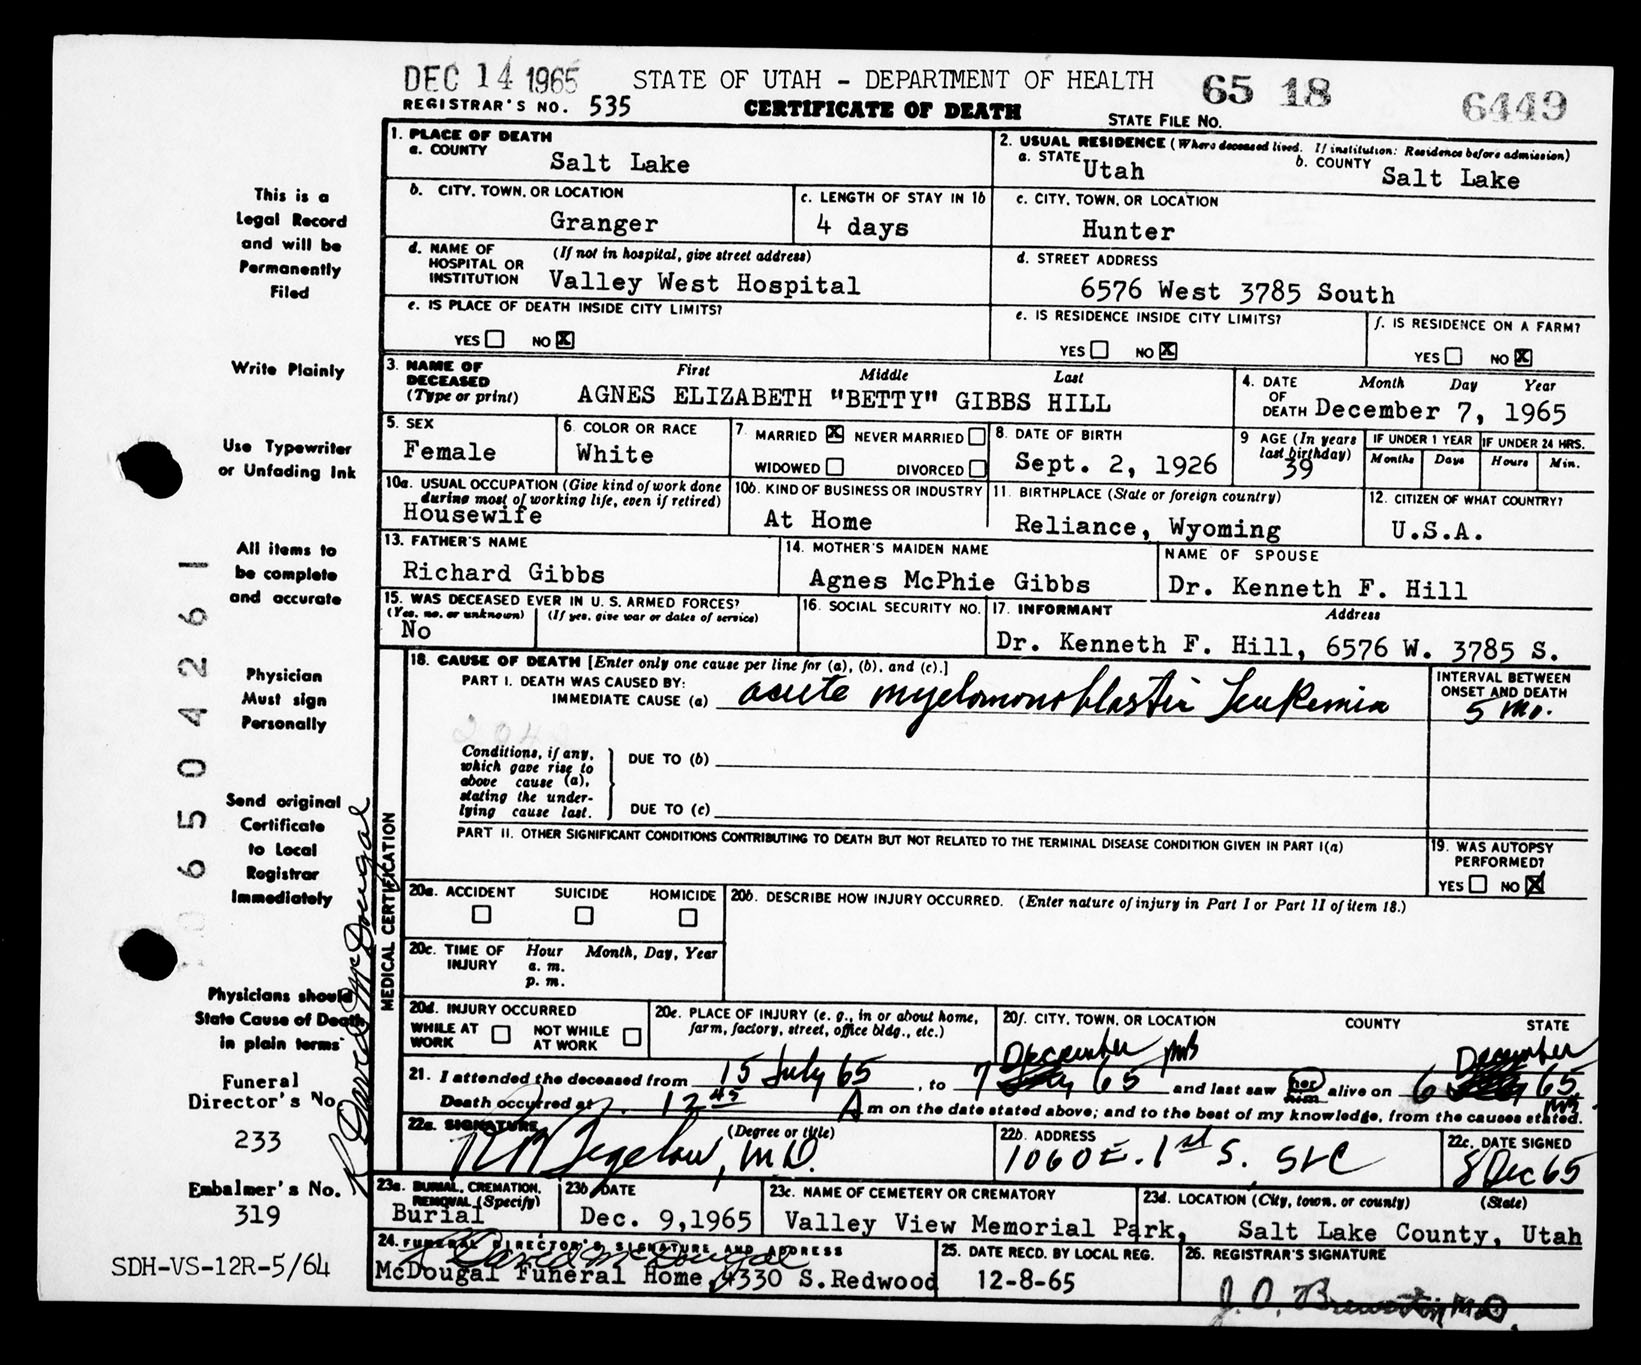 DEC 14 1965 STATE OF UTAH - DEPARTMENT OF HEALTH 65 18 6449
REGISTRAR'S NO. 535 CERTIFICATE OF DEATH STATE FILE NO.
This is a
Legal Record
and will be
Permanently
Filed
Write Plainly
Use Typewriter
or Unfading Ink
All items to
be complete
and accurate
Physician
Must sign
Personally
Send original
Certificate
to Local
Registrar
Immediately
Physicians should
State Cause of Death
in plain terms
Funeral
Director's No.
233
Embalmer's No.
319
SDH-VS-12R-5/64
65 04261
R David McDougal
1. PLACE OF DEATH
a. COUNTY Salt Lake
2. USUAL RESIDENCE (Where deceased lived. If institution: Residence before admission)
a. STATE Utah b. COUNTY Salt Lake
b. CITY, TOWN, OR LOCATION Granger
c. LENGTH OF STAY IN 1b 4 days
c. CITY, TOWN, OR LOCATION Hunter
d. NAME OF HOSPITAL OR INSTITUTION (If not in hospital, give street address)
Valley West Hospital
d. STREET ADDRESS
6576 West 3785 South
e. IS PLACE OF DEATH INSIDE CITY LIMITS?
YES NO X
e. IS RESIDENCE INSIDE CITY LIMITS?
YES NO X
f. IS RESIDENCE ON A FARM?
YES NO X
3. NAME OF DECEASED (Type or print) First Middle Last
AGNES ELIZABETH "BETTY" GIBBS HILL
4. DATE OF DEATH Month Day Year
December 7, 1965
5. SEX Female
6. COLOR OR RACE White
7. MARRIED X NEVER MARRIED
WIDOWED DIVORCED
8. DATE OF BIRTH Sept. 2, 1926
9 AGE (In years last birthday) 39
IF UNDER 1 YEAR Months Days
IF UNDER 24 HRS. Hours Min.
10a. USUAL OCCUPATION (Give kind of work done during most of working life, even if retired)
Housewife
10b. KIND OF BUSINESS OR INDUSTRY
At Home
11. BIRTHPLACE (State or foreign country)
Reliance, Wyoming
12. CITIZEN OF WHAT COUNTRY?
U.S.A.
13. FATHER'S NAME
Richard Gibbs
14. MOTHER'S MAIDEN NAME
Agnes McPhie Gibbs
NAME OF SPOUSE
Dr. Kenneth F. Hill
15. WAS DECEASED EVER IN U. S. ARMED FORCES?
(Yes, no, or unknown) (If yes, give war or dates of service)
No
16. SOCIAL SECURITY NO.
17. INFORMANT Address
Dr. Kenneth F. Hill, 6576 W. 3785 S.
MEDICAL CERTIFICATION
18. CAUSE OF DEATH [Enter only one cause per line for (a), (b), and (c).]
PART I. DEATH WAS CAUSED BY:
IMMEDIATE CAUSE (a) acute myelomonoblastic Leukemia
INTERVAL BETWEEN ONSET AND DEATH
5 mo.
Conditions, if any,
which gave rise to
above cause (a),
stating the under-
lying cause last.
DUE TO (b)
DUE TO (c)
PART II. OTHER SIGNIFICANT CONDITIONS CONTRIBUTING TO DEATH BUT NOT RELATED TO THE TERMINAL DISEASE CONDITION GIVEN IN PART I(a)
19. WAS AUTOPSY PERFORMED?
YES NO X
20a. ACCIDENT SUICIDE HOMICIDE
20b. DESCRIBE HOW INJURY OCCURRED. (Enter nature of injury in Part I or Part II of item 18.)
20c. TIME OF INJURY Hour Month, Day, Year
a. m.
p. m.
20d. INJURY OCCURRED
WHILE AT WORK NOT WHILE AT WORK
20e. PLACE OF INJURY (e. g., in or about home, farm, factory, street, office bldg., etc.)
20f. CITY, TOWN, OR LOCATION COUNTY STATE
December December
21. I attended the deceased from 15 July 65, to 7 65 and last saw her him alive on 6 65
Death occurred at 12 45 A m on the date stated above; and to the best of my knowledge, from the causes stated.
22a. SIGNATURE (Degree or title)
R Bigelow, M.D.
22b. ADDRESS
1060 E. 1st S. SLC
22c. DATE SIGNED
8 Dec 65
23a. BURIAL, CREMATION, REMOVAL (Specify)
Burial
23b DATE
Dec. 9,1965
23c. NAME OF CEMETERY OR CREMATORY
Valley View Memorial Park,
23d. LOCATION (City, town, or county) (State)
Salt Lake County, Utah
24. FUNERAL DIRECTOR'S SIGNATURE AND ADDRESS
R David McDougal
McDougal Funeral Home, 4330 S.Redwood
25. DATE RECD. BY LOCAL REG.
12-8-65
26. REGISTRAR'S SIGNATURE